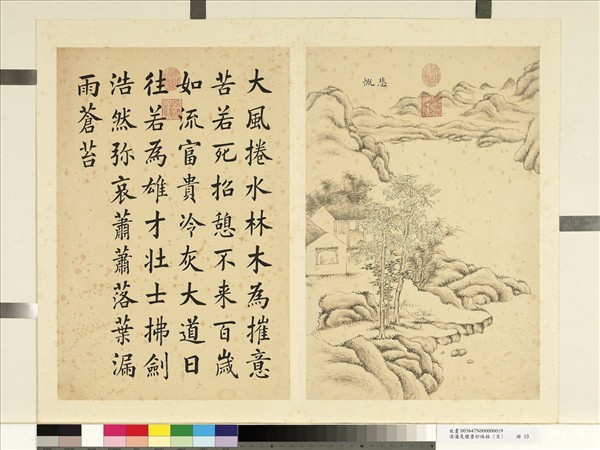 悲慨
大風捲水林木為摧意
苦若死招憩不来百歲
如流富貴冷灰大道日
往若為雄才壯士拂劍
浩然弥哀蕭蕭落葉漏
雨蒼苔
故畫 003647N000000019
墨妙珠林